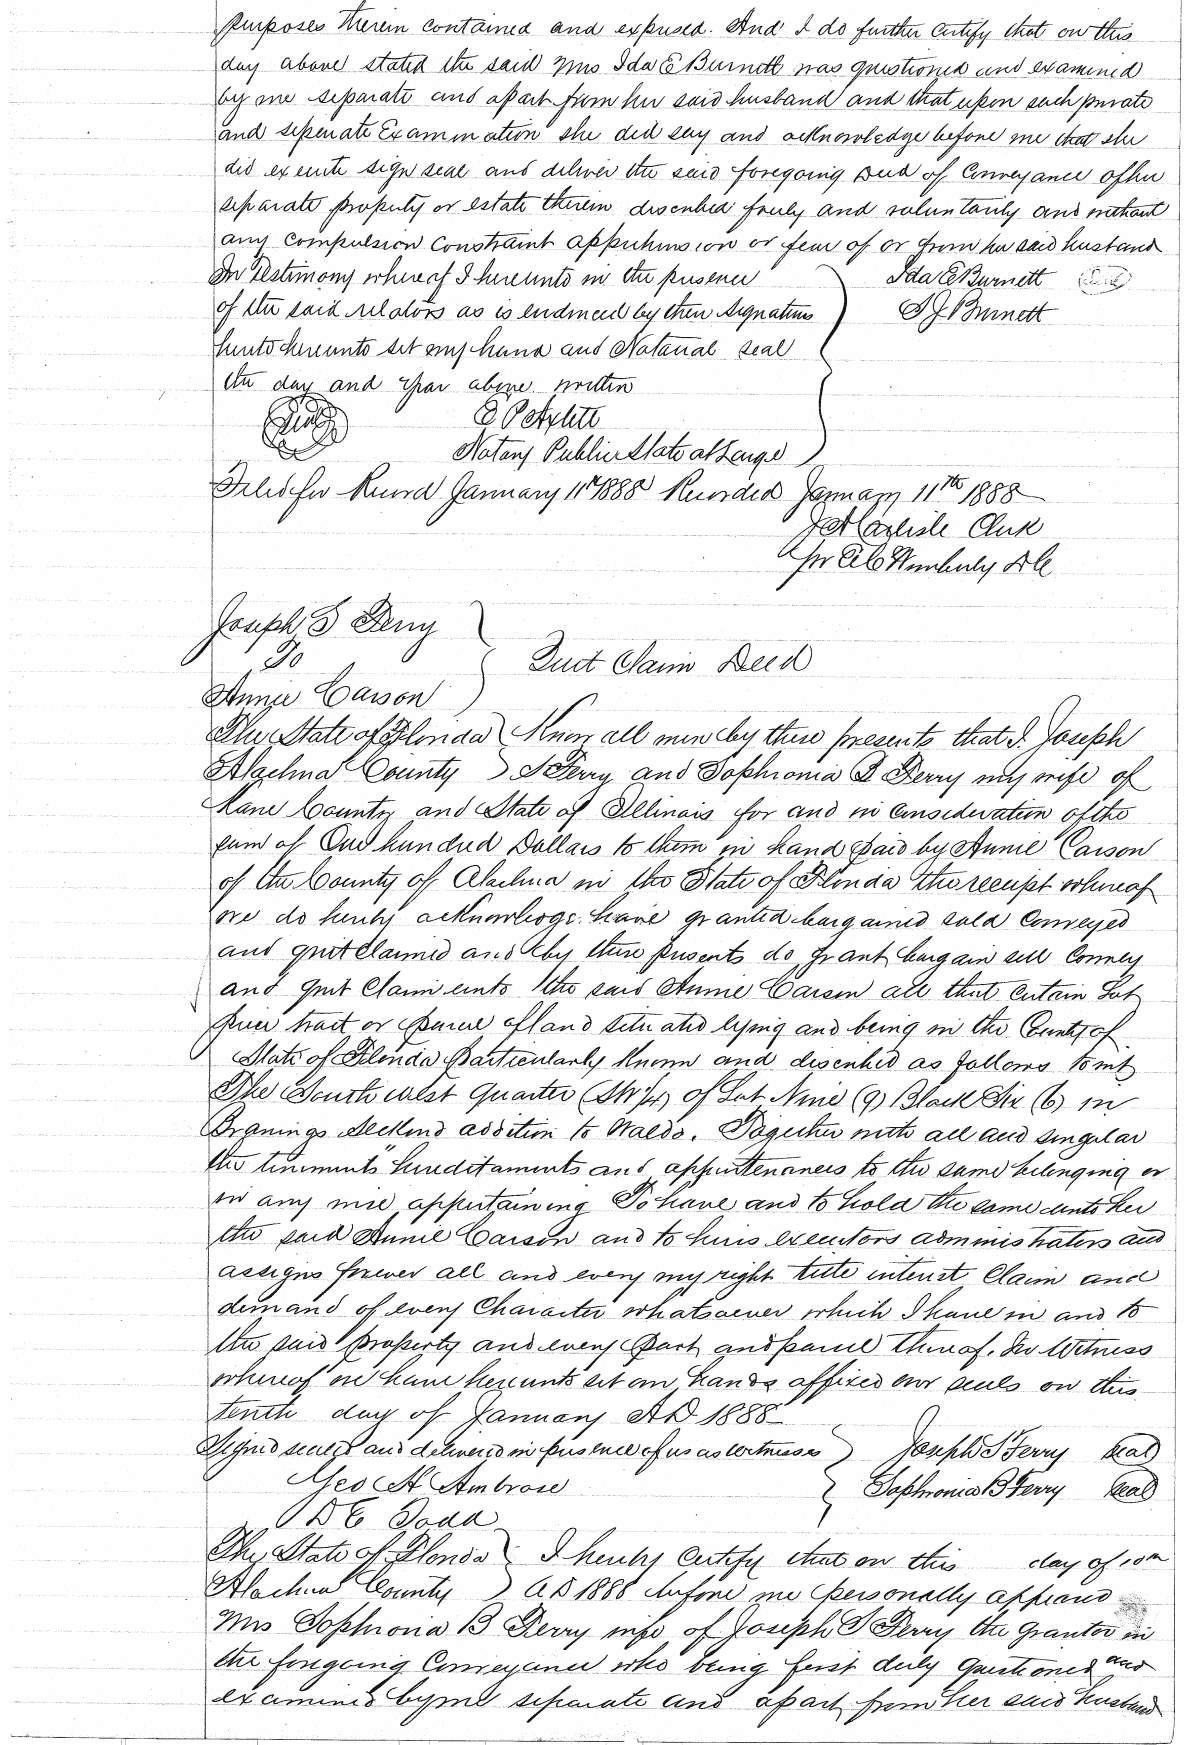 purposes therein contained and exposed. And I do further certify that on this
day above stated the said Mrs Ida E Burnett was questioned and examined
by me separate and apart from her said husband and that upon such private
and seperate Examination she did say and acknowledge before me that she
did execute sign seal and deliver the said foregoing Deed of Conveyance of her
separate property or estate therein described freely and voluntarily and without
any compulsion constraint apprehension or fear of or from her said husband
In Testimony whereof I hereunto in the presence
Ida E Burnett
of the said relators as is evidenced by their signatures
S J Burnett
hereto hereunto set my hand and Notarial seal
the day and year above written
Notary Public State at Large
Filed for Record January 11th 1888 Recorded January 11th 1888
J A Carlisle Clerk
per Wimberly D C
Joseph S Ferry
To
Quit Claim Deed
Annie Carson
The State of Florida Know all men by these presents that I. Joseph
Alachua County S Ferry and Sophronia B Ferry my wife of
Kane County and State of Illinois for and in consideration of the
sum of One hundred Dollars to them in hand paid by Annie Carson
of the County of Alachua in the State of Florida the receipt whereof
we do hereby acknowledge. have granted bargained sold conveyed
and quit claimed and by these presents do grant bargain sell convey
and quit claim unto the said Annie Carson all that certain Lot
piece tract or parcel of land situated lying and being in the County of
State of Florida particularly known and described as follows towit
The South west Quarter (SW 1/4) of Lot Nine (9) Block Six (6) in
addition to Waldo. Together with all and singular
the tenements hereditaments and appurtenances to the same belonging or
in any wise appertaining To have and to hold the same unto her
the said Annie Carson and to heirs executors administrators and
assigns forever all and every my right title interest claim and
demand of every Character whatsoever which I have in and to
the said property and every part and parcel thereof. In Witness
whereof we have hereunto set our hands affixed our seals on this
tenth day of January A D 1888
Signed sealed and delivered in presence of us as witnesses
Joseph S Ferry Seal
Geo A Ambrose
Sophronia B Ferry Seal
D E Todd
The State of Florida I hereby certify that on this day of 10th
Alachua County A D 1888 before me personally appeared
Mrs Sophronia B Ferry wife of Joseph S Ferry the grantor in
the foregoing Conveyance who being first duly questioned and
examined by me separate and apart from her said husband